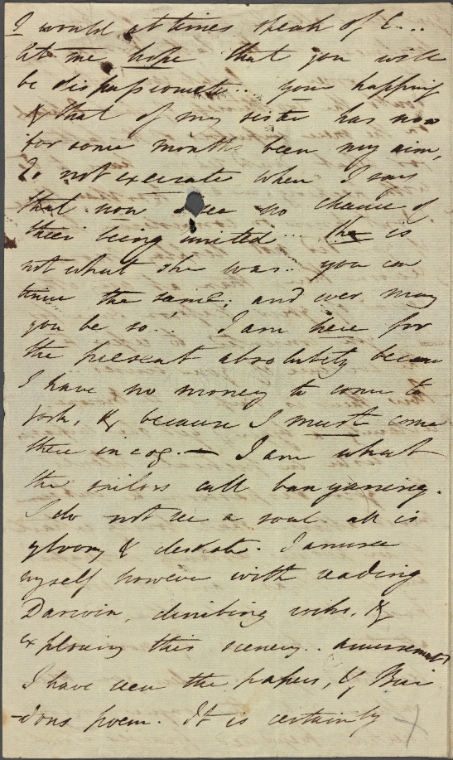 I would at times speak of E...
let me hope that you will
be dispassionate... your happiness
& that of my sister has now
for some months been my aim,
Do not execrate when I say
that now I see no chance of
their being united... she is
not what she was.. you can
the same; and ever may
you be so! I am here for
the present absolutely because
I have no money to come to
York, & because I must come
there incog. — I am what
the sailors call banyaning.
I do not see a soul. all is
gloomy & desolate. I amuse
myself however with reading
Darwin, climbing rocks, &
exploring this scenery.. amusements
I have seen the papers, &
-dons poem. It is certainly